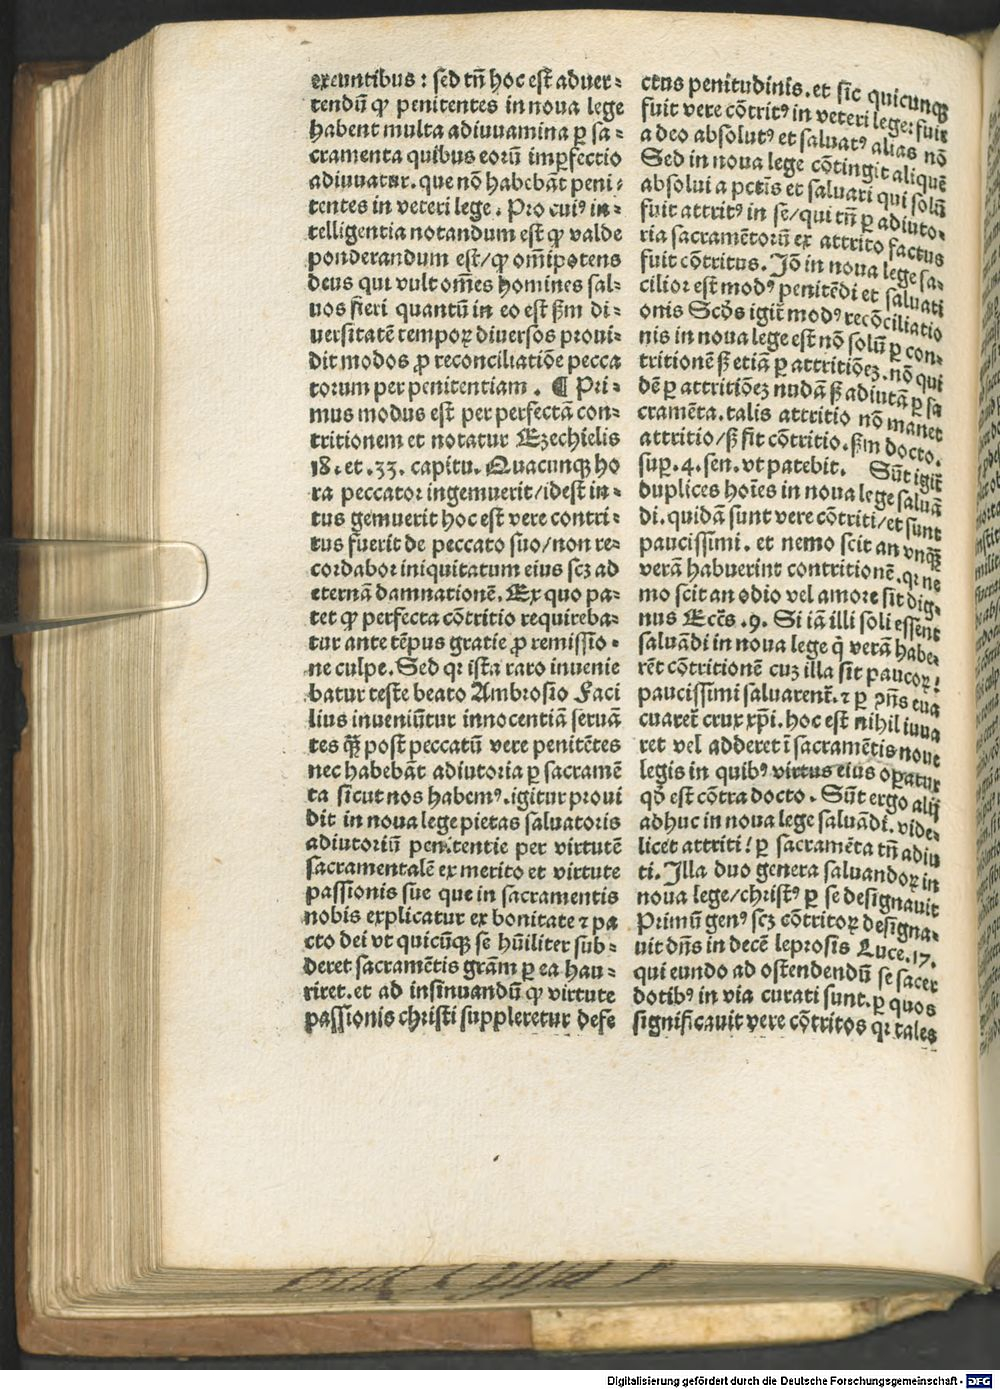 exeuntibus : sed tñ hoc est aduer⸗
tendū ꝙ penitentes in noua lege
habent multa adiuuamina ꝑ sa⸗
cramenta quibus eorū imꝑfectio
adiuuatur. que nō habebāt peni⸗
tentes in veteri lege. Pro cuiꝰ in⸗
telligentia notandum est ꝙ valde
ponderandum est/ꝙ om̄ipotens
deus qui vult om̄es homines sal⸗
uos fieri quantū in eo est ẜm di⸗
uersitatē tempoꝝ diuersos proui⸗
dit modos ꝓ reconciliatiōe pecca
torum per penitentiam . ¶ Pri⸗
mus modus est per perfectā con⸗
tritionem et notatur Ezechielis
18. et .33. capitu. Quacunqꝫ ho
ra peccator ingemuerit/idest in⸗
tus gemuerit hoc est vere contri⸗
tus fuerit de peccato suo/non re⸗
cordabor iniquitatum eius scꝫ ad
eternā damnationē. Ex quo pa⸗
tet ꝙ perfecta cōtritio requireba⸗
tur ante tēpus gratie ꝓ remissio⸗
ne culpe. Sed qꝛ ista raro inuenie
batur teste beato Ambrosio Faci
lius inueniūtur innocentiā seruā
tes qꝫ̄ post peccatū vere penitētes
nec habebāt adiutoria ꝑ sacramē
ta sicut nos habemꝰ. igitur proui
dit in noua lege pietas saluatoris
adiutoriū penitentie per virtutē
sacramentalē ex merito et virtute
passionis sue que in sacramentis
nobis explicatur ex bonitate ⁊ pa
cto dei vt quicūqꝫ se hūiliter sub⸗
deret sacramētis grām ꝑ ea hau⸗
riret. et ad insinuandū ꝙ virtute
passionis christi suppleretur defe
ctus penitudinis. et sic quicunqꝫ
fuit vere cōtritꝰ in veteri lege: fuit
adeo absolutꝰ et saluatꝰ alias nō
Sed in noua lege cōtingit aliquē
absolui a pctīs et saluari qui solū
fuit attritꝰ in se/qui tñ ꝑ adiuto⸗
ria sacramētorū ex attrito factus
fuit cōtritus. Jō in noua lege fa⸗
cilior est modꝰ penitēdi et saluati
onis Scḋs igit̄ modꝰ recōciliatio
nis in noua lege est nō solū ꝑ con⸗
tritionē ꝫ etiā ꝑ attritiōeꝫ. nō qui
dē ꝑ attritiōeꝫ nudā ꝫ adiutā ꝑ sa
cramēta. talis attritio nō manet
attritio/ꝫ fit cōtritio. ẜm docto.
suꝑ. 4. sen. vt patebit. Sūt igit̄
duplices hoīes in noua lege saluā
di. quidā sunt vere cōtriti/et sunt
paucissimi. et nemo scit an vnqꝫ̄
verā habuerint contritionē. qꝛ ne
mo scit an odio vel amore sit dig⸗
nus Ecc̄s .9. Si iā illi soli essent
saluādi in noua lege q̇ verā habe⸗
rēt cōtritionē cuꝫ illa sit paucoꝝ:
paucissimi saluarent̄. ⁊ ꝑ ꝯn̄s eua
cuaret̄ crux xp̄i. hoc est nihil iuua
ret vel adderet ī sacramētis noue
legis in quibꝰ virtus eius oꝑatur
qḋ est cōtra docto. Sūt ergo alij
adhuc in noua lege saluādi. vide⸗
licet attriti: ꝑ sacramēta tñ adiu
ti. Illa duo genera saluandoꝝ in
noua lege/christꝰ ꝑ se designauit
Primū genꝰ scꝫ cōtritoꝝ designa⸗
uit dn̄s in decē leprosis Luce. 17.
qui eundo ad ostendendū se sacer
dotibꝰ in via curati sunt. ꝑ quos
significauit vere cōtritos qꝛ tales
Digitalisierung gefördert durch die Deutsche Forschungsgemeinschaft - DFG